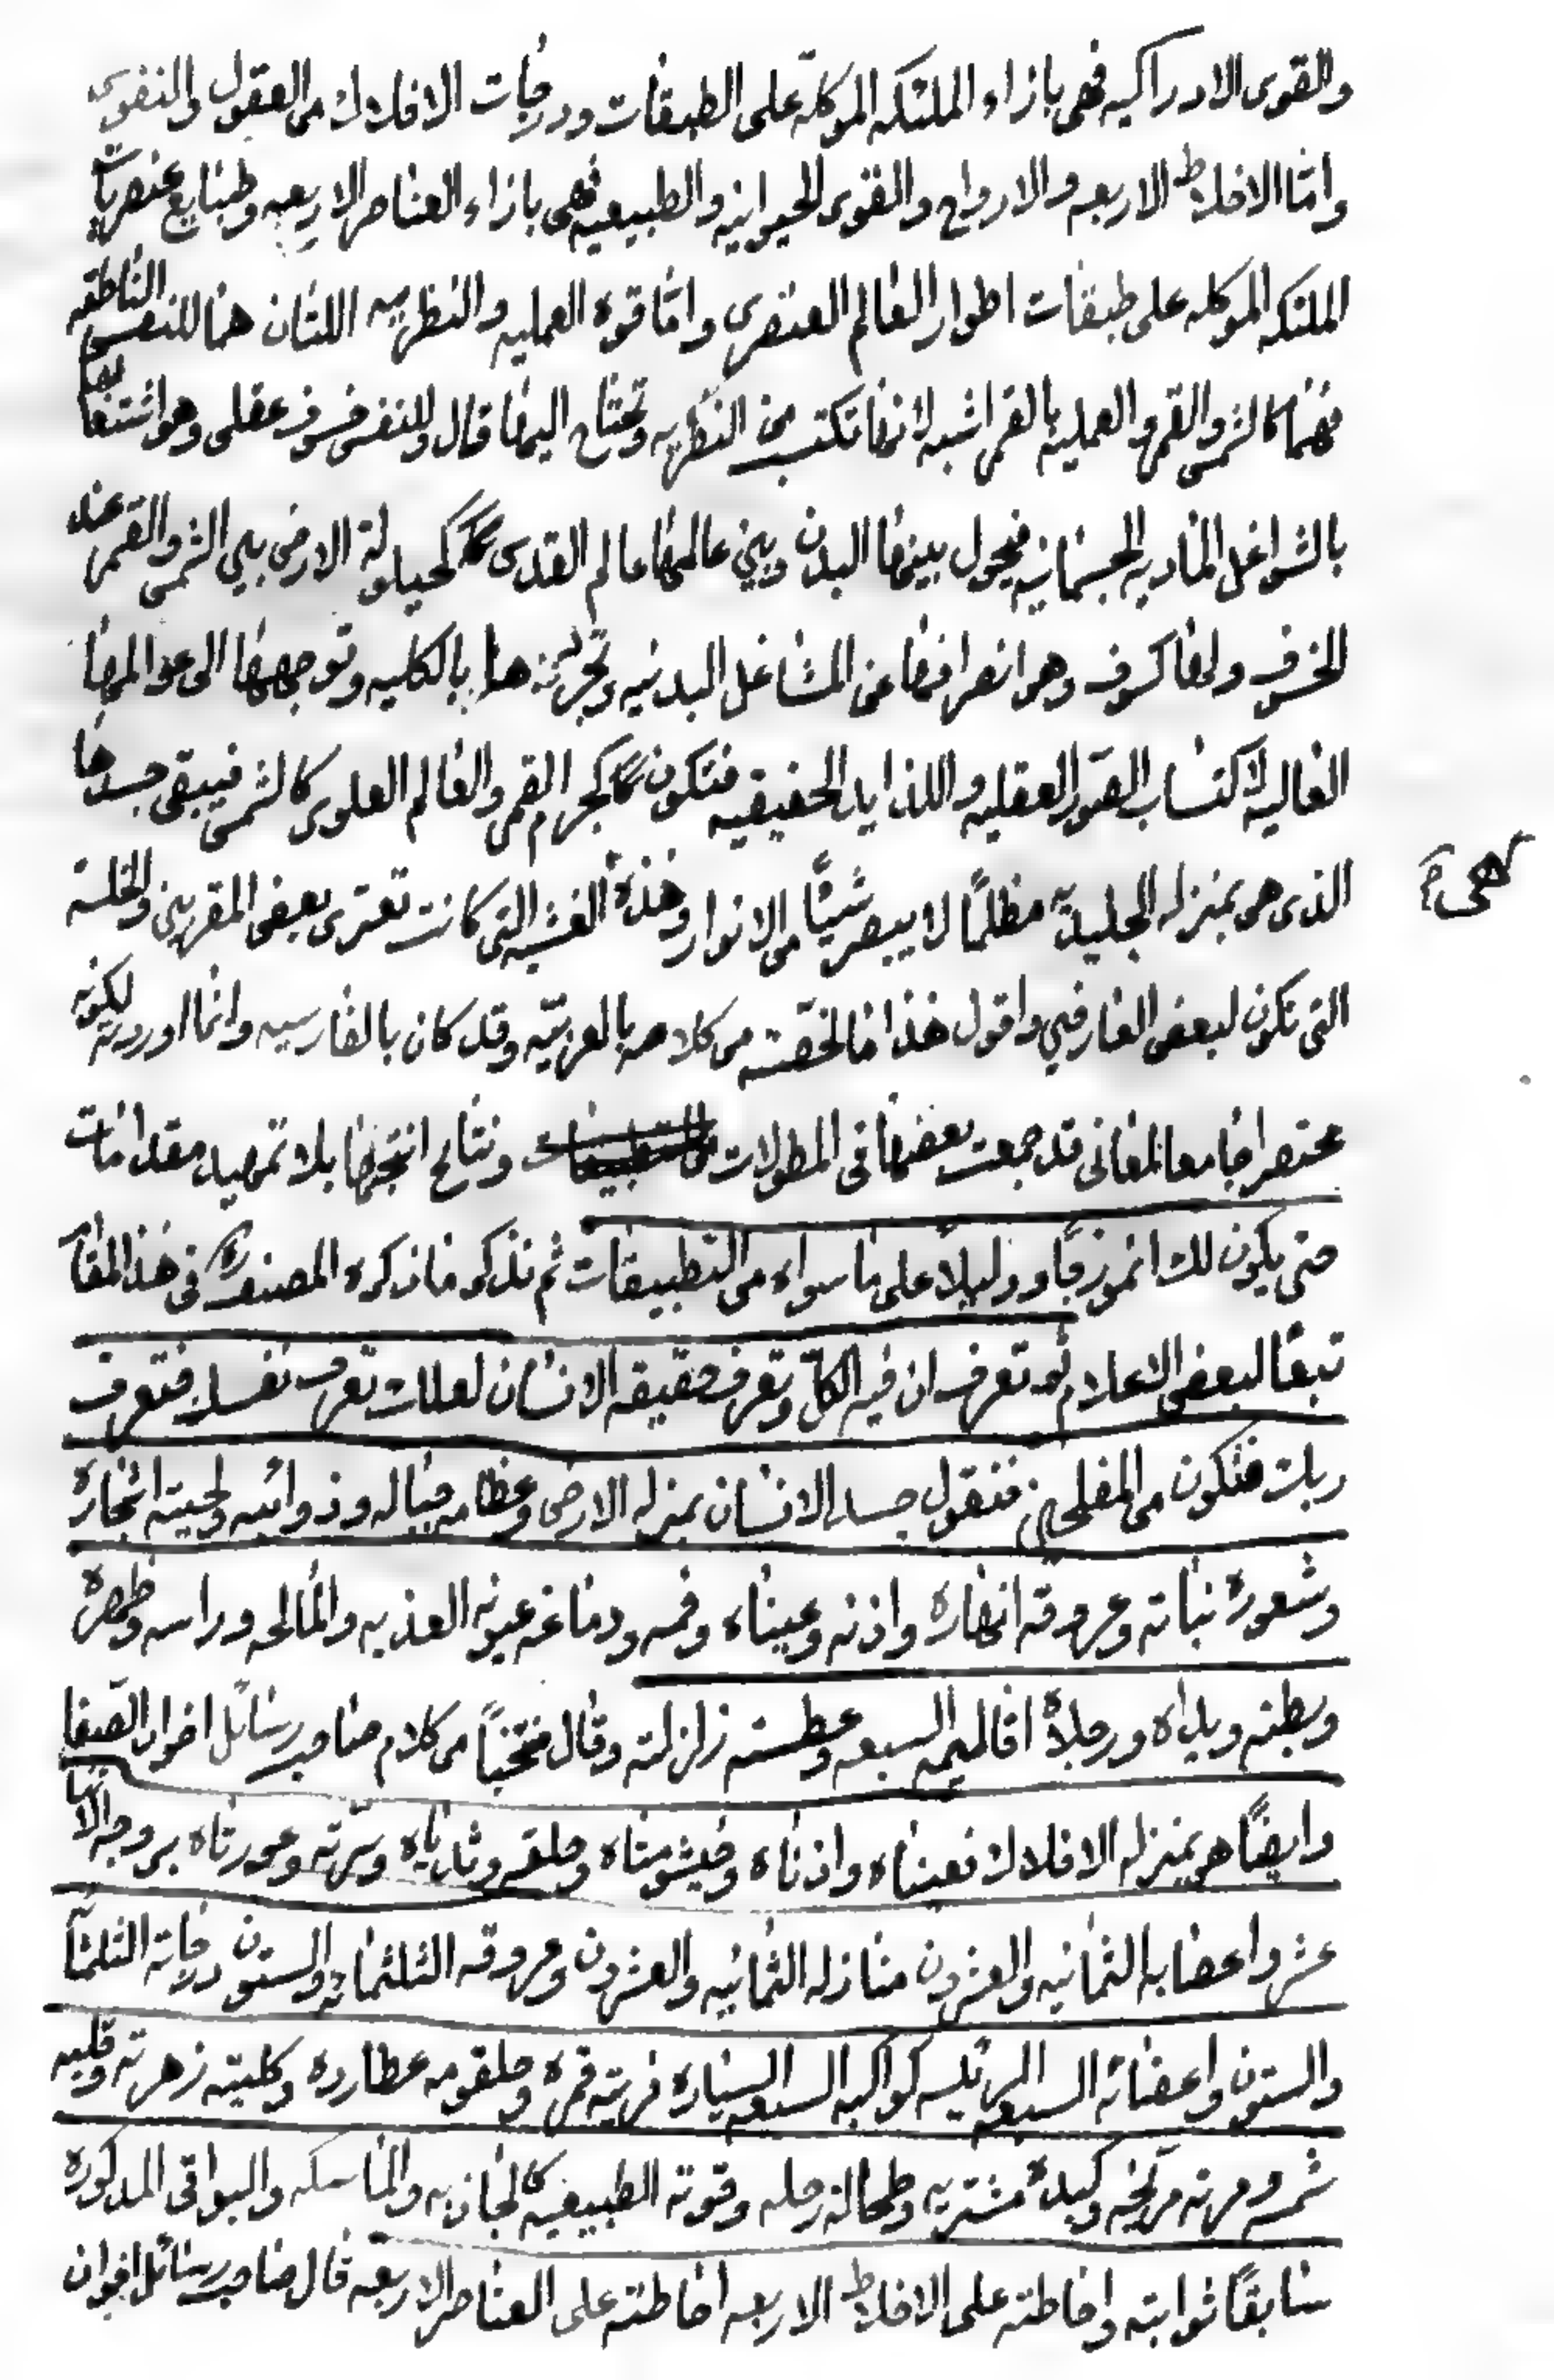 والقوى الادراكيه فهى بازاء الملئكه الموكلة على الطبقات ودرجات الافلاك من العقول والنفوس
وامّا الاخلاط الاربعه والارواح والقوى الحيوانيه والطبيعيه فهى بازاء العناصر الاربعه وطبايع عنصريات
الملئكه الموكله على طبقات اطوار العالم العنصرى وامّا قوه العمليه والنظريه اللتان هما للنفس الناطقه
فهما كالشمس والقمر والعمليه بالقمر اشبه لانها تكتسب من النظريه وتحتاج اليها قال وللنفس خسوف عقلى وهو اشتغالها
بالشواغل الماديه الجسمانيه فيحول بينها البدن وبين عالمها عالم القدس كحيلولة الارض بين الشمس والقمر عند
الخسوف ولها كسوف وهو انصرافها عن المشاغل البدنيه وتجردها بالكليه وتوجهها الى عوالمها
العاليه لاكتساب الصّور العقليه واللذايذ الحقيقيه فتكون كجرم القمر والعالم العلوى كالشمس فيبقى جسدها
الذى هى بمنزله الجليديّه مظلمًا لا يبصر شيئًا من الانوار وهذه الغشيه التى كانت تعترى بعض المقربين والخلسة
التى تكون لبعض العارفين واقول هذا ما لخّصته من كلامه بالعربيّه وقد كان بالفارسيه وانّما اوردته لكونه
مختصرا جامعا لمعانى قد جمعت بعضها فى المطولات ونتايج انتجها بلا تمهيد مقدامات
حتى يكون لك انموزجًا ودليلاً على ما سواه من التطبيقات ثم نذكر ما ذكره المصنف فى هذا المقام
تبعًا لبعض الاعلام ثم تعرف ان فيه الكلّ وتعرف حقيقه الانسان لعلك تعرف نفسك فتعرف
ربك فتكون من المفلحين فنقول جسد الانسان بمنزله الارض وعظامه جباله وذوائبه ولحيته اشجاره
وشعوره نباته وعروقه انهاره واذنه وعيناه وفمه ودماغه عيونه العذبه والمالحه وراسه وظهره
وبطنه ويداه ورجلاه اقاليمه السبعه وعطسته زلزلته وقال منتخبًا من كلام صاحب رسائل اخوان الصّفا
وايضًا هو بمنزله الافلاك فعيناه واذناه وخيشومتاه وحلقه وثدياه وسرّته وعورتاه بروجه الاثنا
عشر واعضابه الثمانيه والعشرون منازله الثمانيه والعشرون وعروقه الثلثمائه والستون درجاته الثلثمائه
والستون واعضائه السبعه الرئيسه كواكبه السبعه السياره فريته قمره وحلقومه عطارده وكليته زهرته وقلبه
شمسه ومرته مريخه وكبده مشتريه وطحاله زحله وقوته الطبيعيه كالجاذبه والماسكه والبواقى المذكوره
سابقًا ثوابته واحاطته على الاخلاط الاربعه احاطته على العناصر الاربعه قال صاحب رسائل اخوان